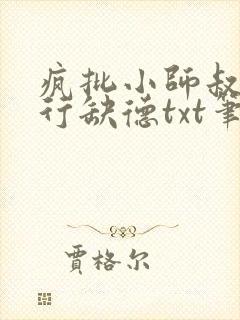 疯批小師叔
行缺德txt筆
賈格尔